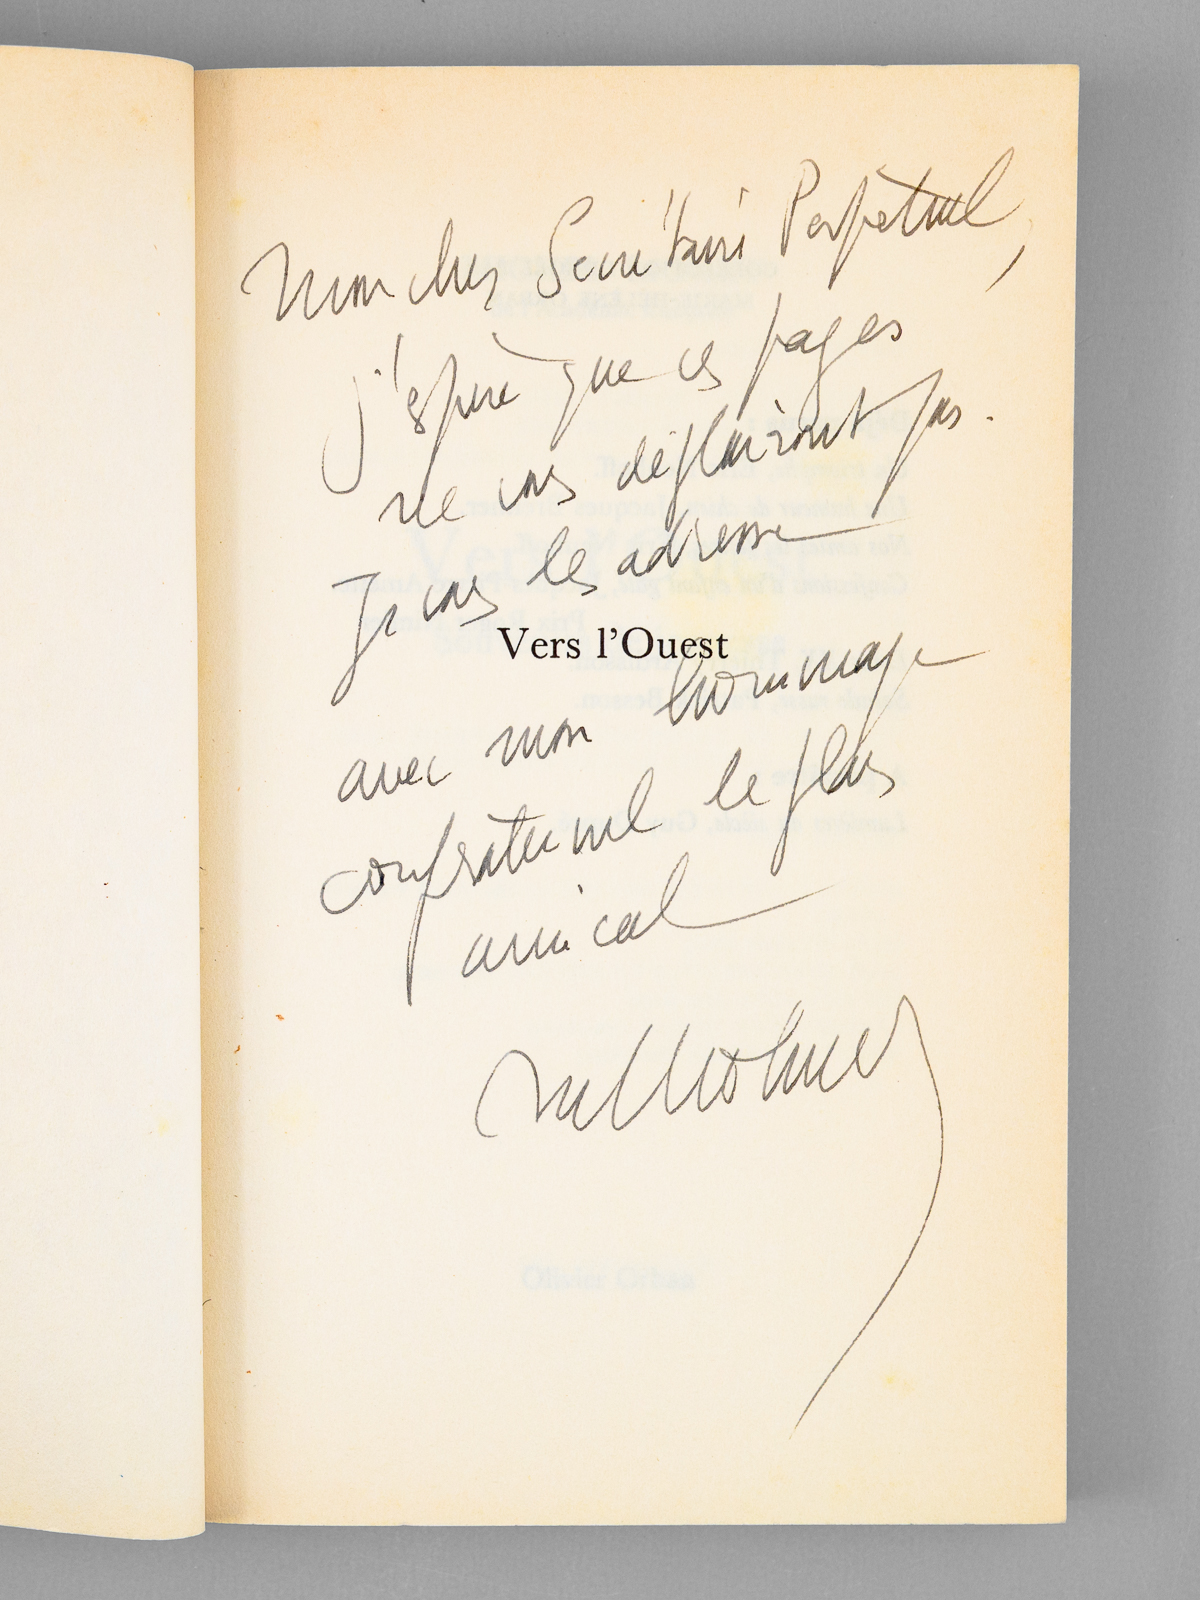 Mon cher Secrétaire Perpétuel,
j'espère que ces pages
ne vous déplairont pas.
Je vous les adresse
Vers l'Ouest
avec mon hommage
confraternel le plus
amical
Olivier Orban